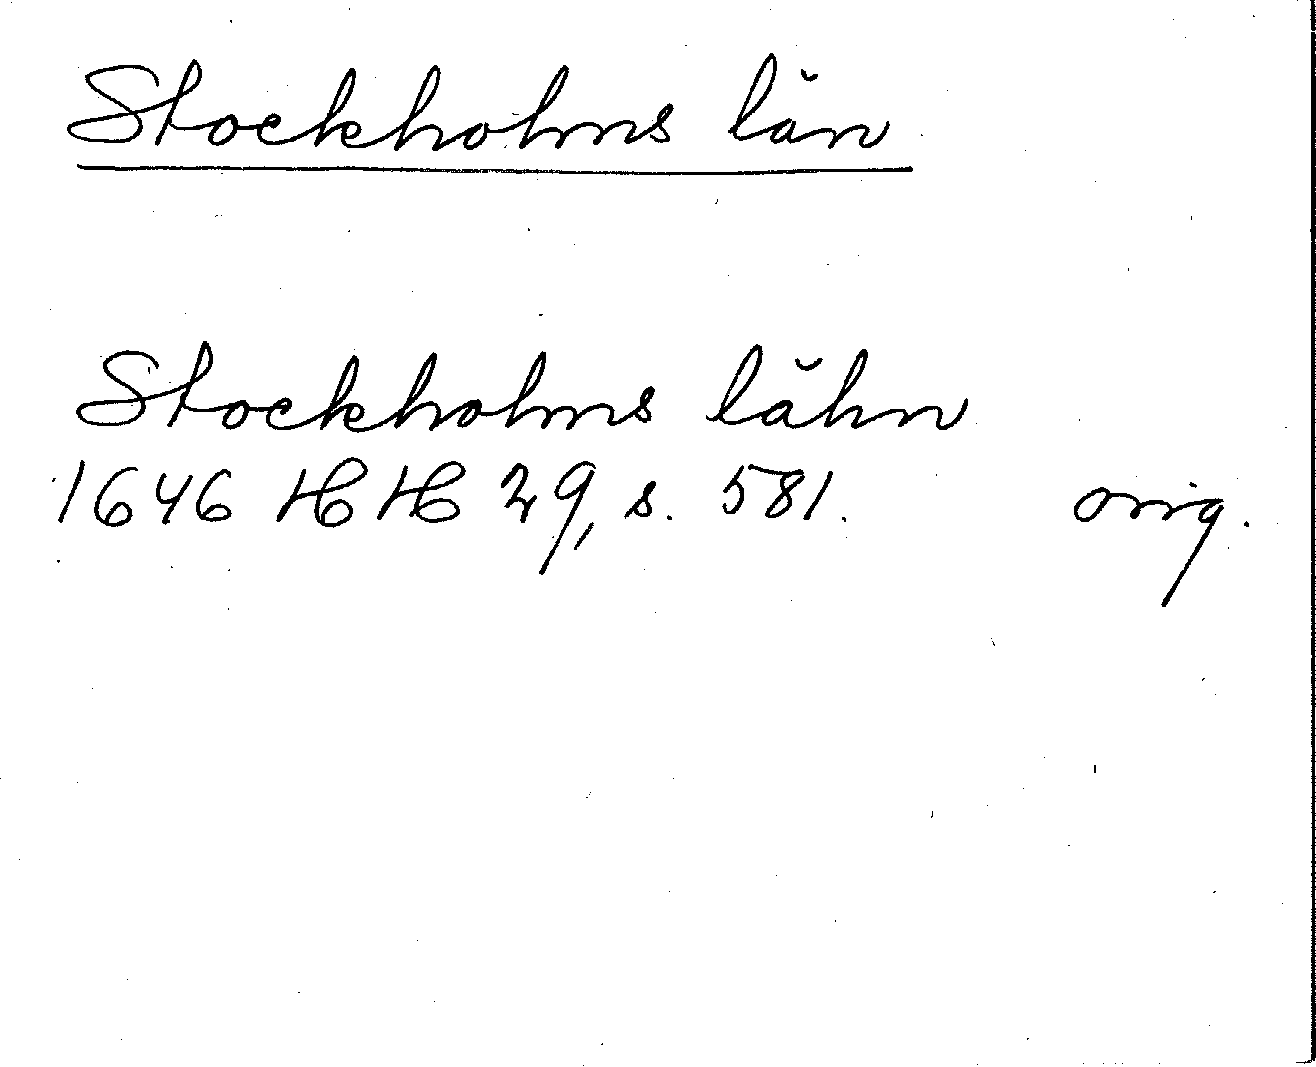 Stockholms län
Stockholms lähn
1646 HH 29, s. 581. orig.